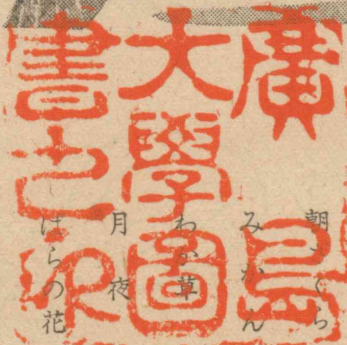 廣島
大學圖
書之印
朝ざくら
みかん
わか草
月夜
ばらの花